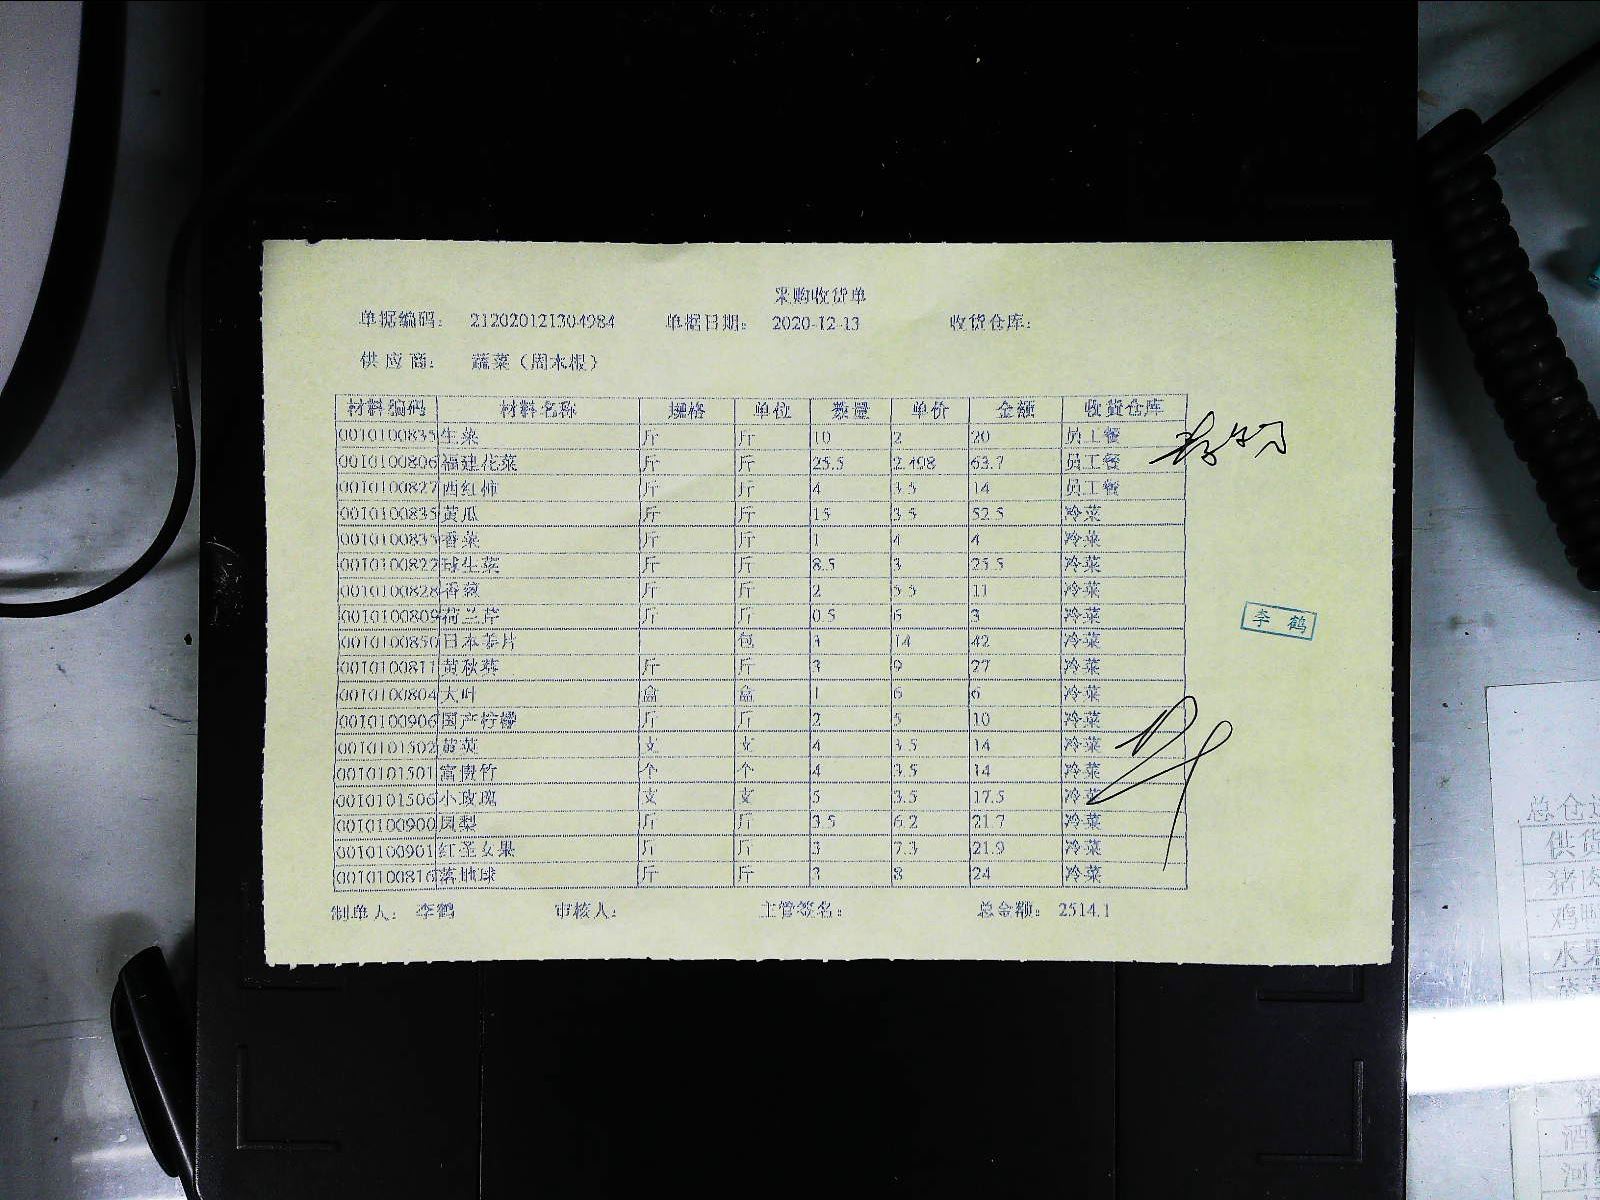 采购收货单
单据编码： 212020121304984 单据日期： 2020-12-13 收货仓库：
供应商： 蔬菜（周末根）
材料编码 材料名称 规格 单位 数量 单价 金额 收货仓库
0010100835 生菜 斤 斤 10 2 20 员工餐
0010100806 福建花菜 斤 斤 25.5 2.498 63.7 员工餐
0010100827 西红柿 斤 斤 4 3.5 14 员工餐
0010100835 黄瓜 斤 斤 15 3.5 52.5 冷菜
0010100835 香菜 斤 斤 1 4 4 冷菜
0010100822 球生菜 斤 斤 8.5 3 25.5 冷菜
0010100828 香葱 斤 斤 2 5.5 11 冷菜
0010100809 荷兰芹 斤 斤 0.5 6 3 冷菜
0010100850 日本姜片 包 3 14 42 冷菜
0010100811 黄秋葵 斤 斤 3 9 27 冷菜
0010100804 大叶 盒 盒 1 6 6 冷菜
0010100906 国产柠檬 斤 斤 2 5 10 冷菜
0010101502 黄英 支 支 4 3.5 14 冷菜
0010101501 富贵竹 个 个 4 3.5 14 冷菜
0010101506 小玫瑰 支 支 5 3.5 17.5 冷菜
0010100900 凤梨 斤 斤 3.5 6.2 21.7 冷菜
0010100901 红圣女果 斤 斤 3 7.3 21.9 冷菜
0010100816 落地球 斤 斤 3 8 24 冷菜
李 鹤
制单人： 李鹤 审核人： 主管签名： 总金额： 2514.1
总仓
供货
猪肉
鸡鸭
水果
酒